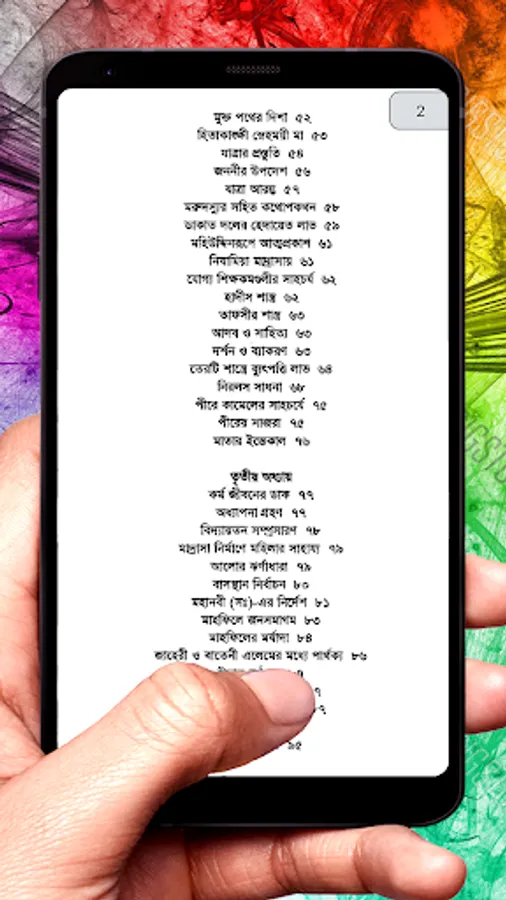 2
মুক্ত পথের দিশা ৫২
হিতাকাঙ্ক্ষী স্নেহময়ী মা ৫৩
যাত্রার প্রস্তুতি ৫৪
জননীর উপদেশ ৫৬
যাত্রা আরম্ভ ৫৭
মরুদস্যুর সহিত কথোপকথন ৫৮
ডাকাত দলের হেদায়েত লাভ ৫৯
মহিউদ্দিনরূপে আত্মপ্রকাশ ৬১
নিযামিয়া মাদ্রাসায় ৬১
যোগ্য শিক্ষকমণ্ডলীর সাহচর্য ৬২
হাদীস শাস্ত্র ৬২
তাফসীর শাস্ত্র ৬৩
আদব ও সাহিত্য ৬৩
দর্শন ও ব্যাকরণ ৬৩
তেরটি শাস্ত্রে ব্যুৎপত্তি লাভ ৬৪
নিরলস সাধনা ৬৮
পীরে কামেলের সাহচর্যে ৭৫
পীরের সাজরা ৭৫
মাতার ইন্তেকাল ৭৬
তৃতীয় অধ্যায়
কর্ম জীবনের ডাক ৭৭
অধ্যাপনা গ্রহণ ৭৭
বিদ্যায়তন সম্প্রসারণ ৭৮
মাদ্রাসা নির্মাণে মহিলার সাহায্য ৭৯
আলোর ঝর্ণাধারা ৭৯
বাসস্থান নির্বাচন ৮০
মহানবী (সাঃ)-এর নির্দেশ ৮১
মাহফিলে জনসমাগম ৮৩
মাহফিলের মর্যাদা ৮৪
জাহেরী ও বাতেনী এলেমের মধ্যে পার্থক্য ৮৬
৯৫